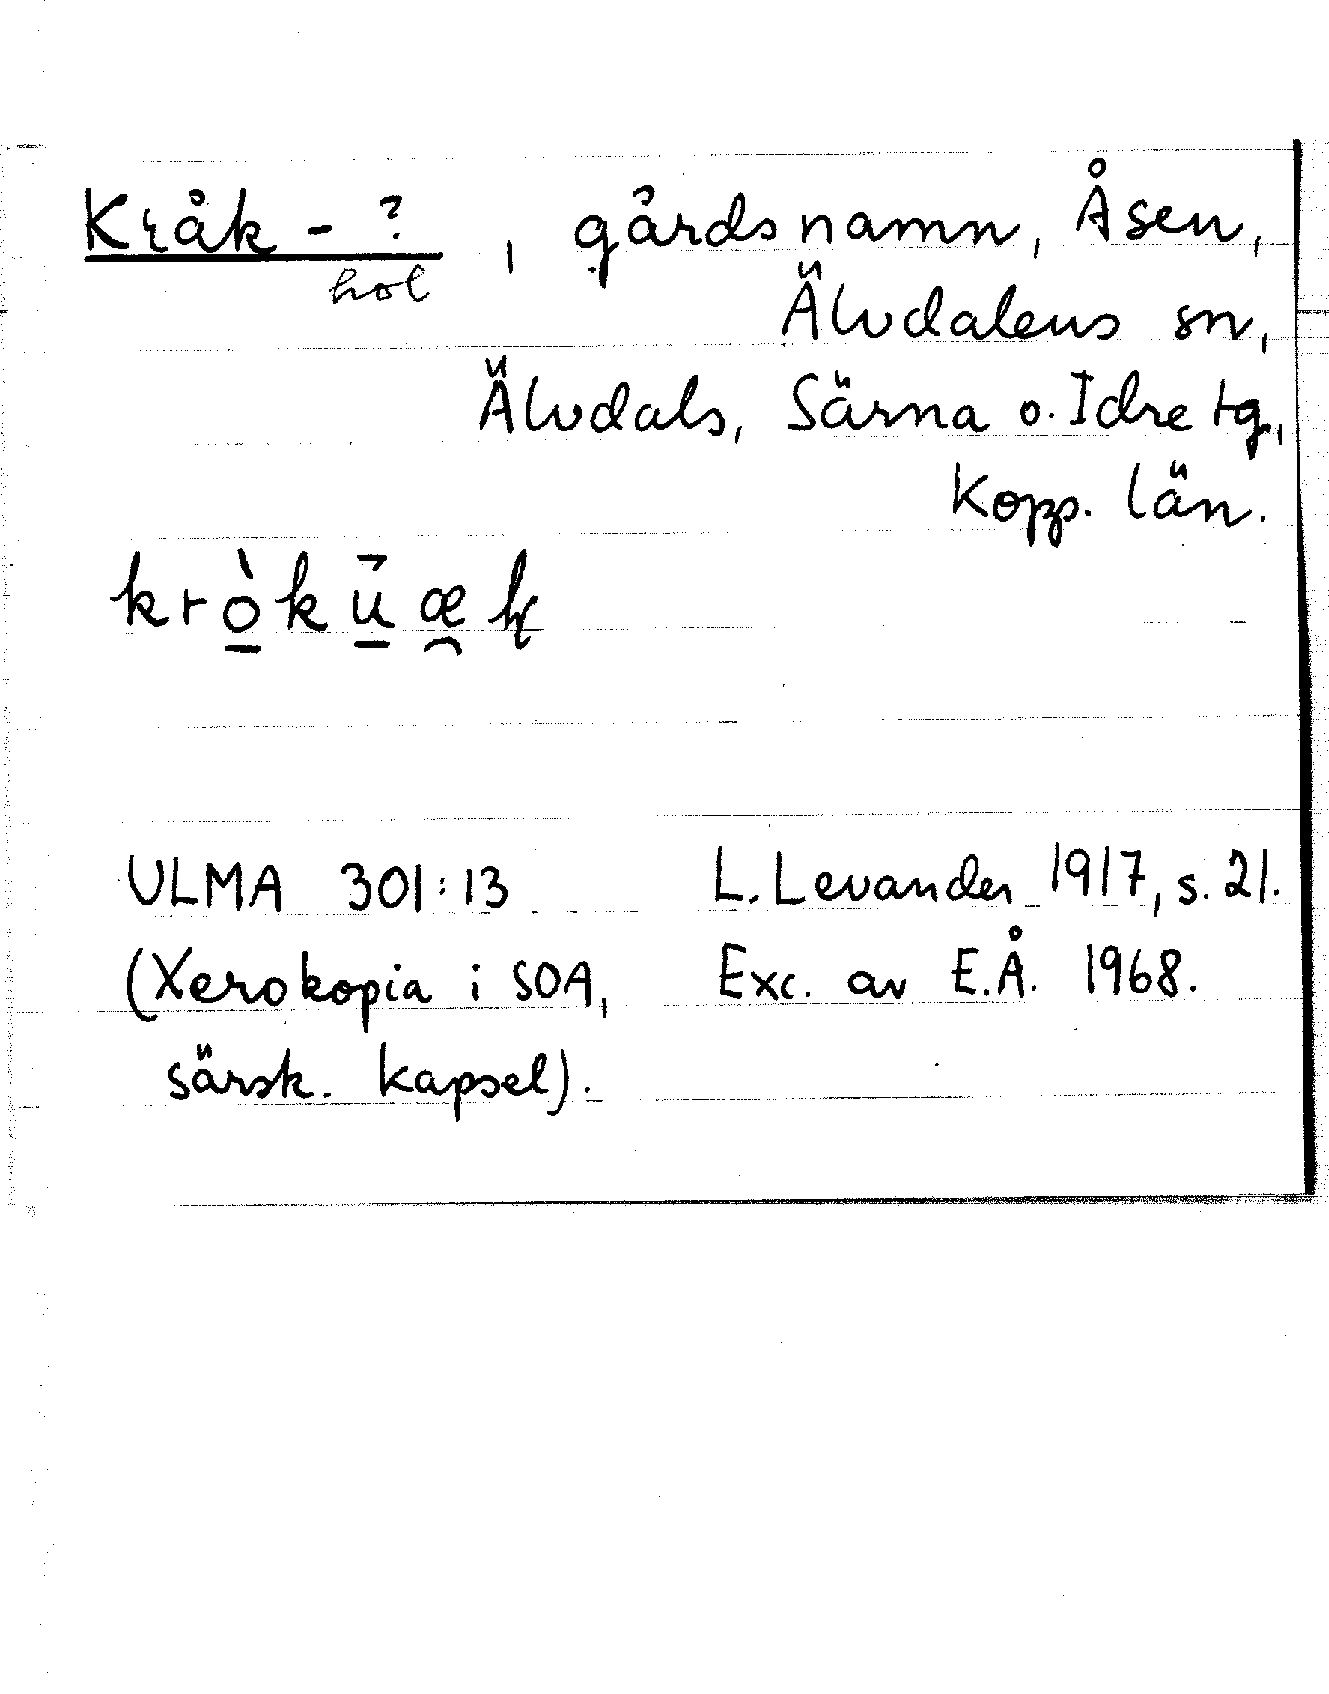 Kråk - ?, gårdsnamn, Åsen,
hol
Älvdalens sn,
Älvdals, Särna o. Idre tg,
Kopp. län.
krò̲kū̲æ̯
ULMA 301:13 L. Levander 1917, s. 21.
(Xerokopia i SOA, Exc. av E.Å. 1968.
särsk. kapsel).